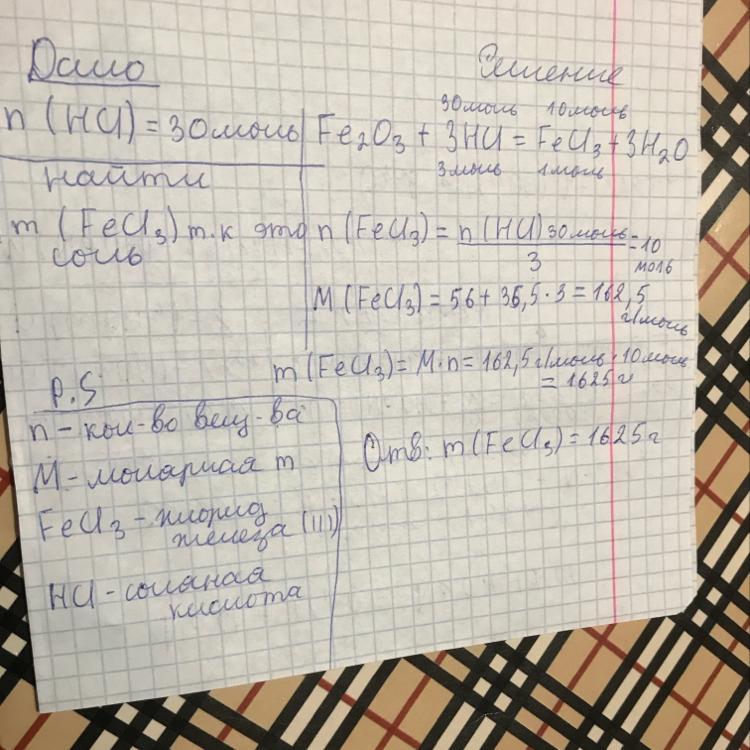 Дано
n (HCl) = 30 моль
найти
m (FeCl₃) т.к это
соль
Решение
30 моль 10 моль
Fe₂O₃ + 3HCl = FeCl₃ + 3H₂O
3 моль 1 моль
n (FeCl₃) = n (HCl) 30 моль = 10
3 моль
M (FeCl₃) = 56 + 35,5 · 3 = 162,5
г/моль
m (FeCl₃) = M · n = 162,5 г/моль · 10 моль
= 1625 г
Отв: m (FeCl₃) = 1625 г
P.S
n - кол-во вещ-ва
M - молярная m
FeCl₃ - хлорид
железа (III)
HCl - соляная
кислота